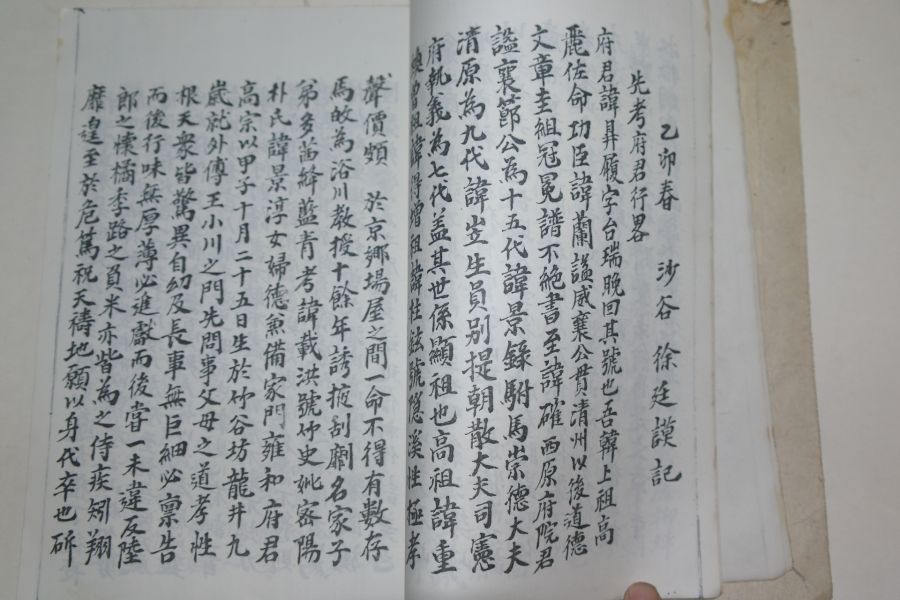 乙卯春 沙谷 徐廷謨記
先考府君行畧
府君諱昇履字台瑞晩回其號也吾韓上祖高
麗佐命功臣諱蘭謚威襄公貫清州以後道德
文章圭組冠冕譜不絶書至諱確西原府院君
謚襄節公爲十五代諱景錄駙馬崇德大夫
清原爲九代諱岦生員別提朝散大夫司憲
府執義爲七代盖其世係顯祖也高祖諱重
煥曾祖諱得增祖諱柱鉉號隱溪性極孝
聲價頗 於京鄉場屋之間一命不得有數存
焉故爲浴川教授十餘年誘掖刮劘名家子
弟多茁絳藍青考諱載洪號竹史妣密陽
朴氏諱景淳女婦德兼備家門雍和府君
高宗以甲子十月二十五日生於竹谷坊龍井九
歲就外傅王小川之門先問事父母之道孝性
根天衆皆驚異自幼及長事無巨細必禀告
而後行味無厚薄必進獻而後嘗一未違反陸
郎之懷橘季路之負米亦皆爲之侍疾矧翔
靡遑至於危篤祝天禱地願以身代卒也斫